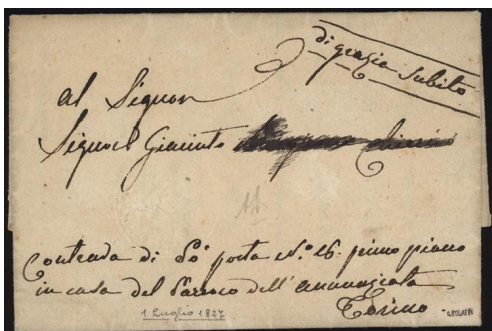 di grazia Subito
al Signor
Signor Giacinto
Contrada di Pò porta N.º 16. primo piano
in casa del Parroco dell'annunziata
Torino
1 Luglio 1827